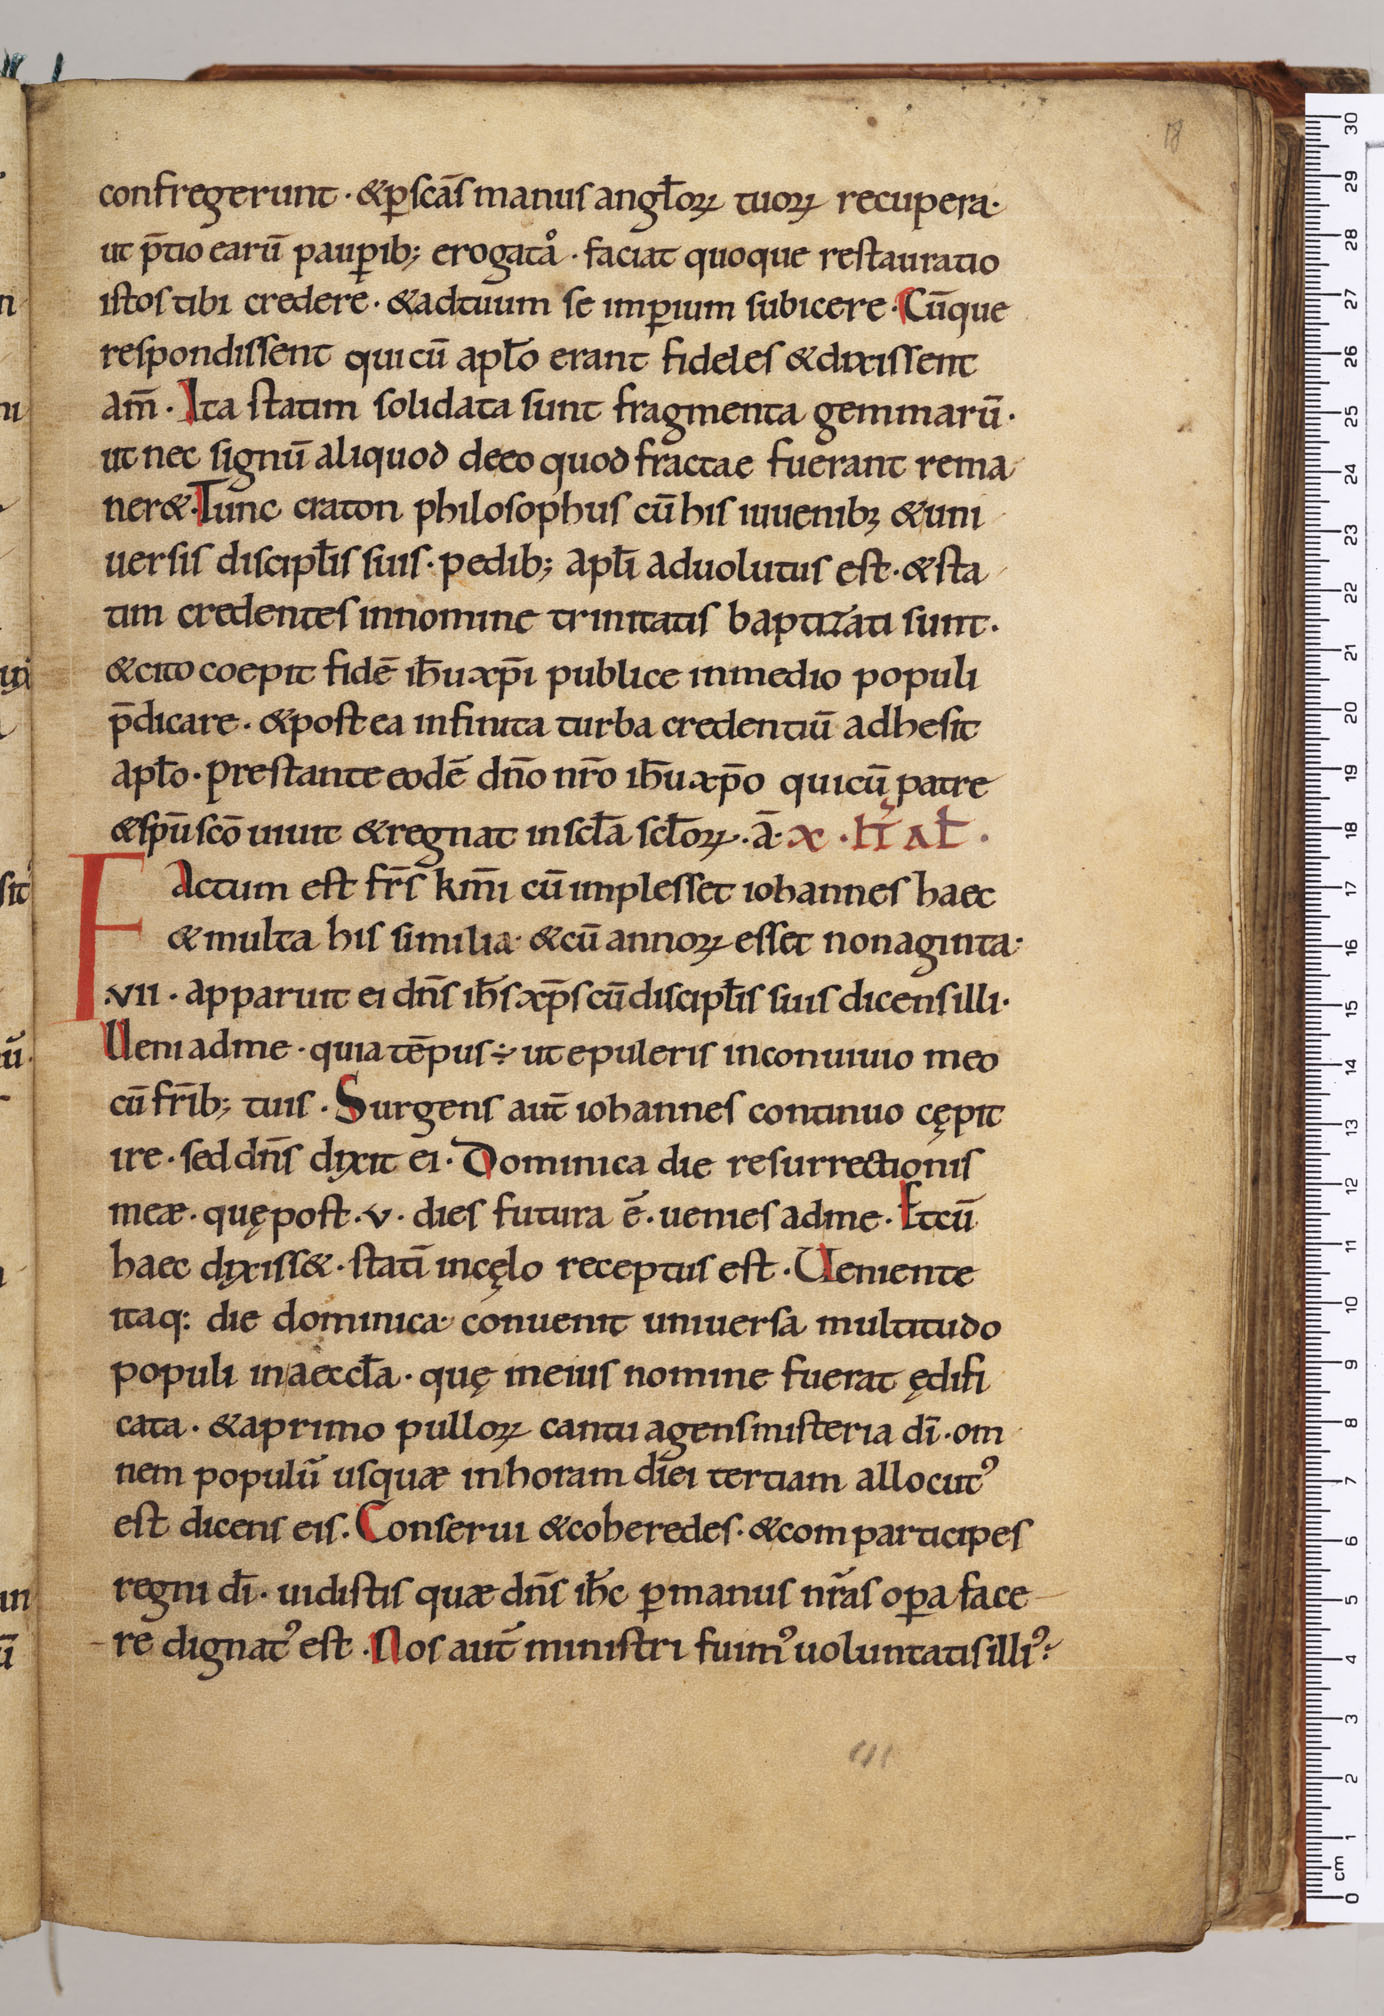 18
confregerunt · & ꝑ scāſ manuſ angłoꝝ tuoꝝ recupera·
ut p̄tio earū pauꝑib; erogatͦa · faciat quoque reſtauratio
iſtoſ tibi credere · & ad tuum se imꝑium subicere · Cūque
reſpondiſſent qui cū apło erant fideleſ & dixiſſent
am̄ · Ita ſtatim solidata sunt fragmenta gemmarū ·
ut nec signū aliquod deeo quod fractae fuerant rema
ner& · Tunc craton philoſophuſ cū hiſ iuuenibꝫ & uni
uerſiſ diſcipłiſ ſuiſ · pedib; apłi aduolutuſ eſt · & ſta
tim credenteſ in nomine trinitatiſ baptizati sunt ·
& cito coepit fidē ih̄u xp̄i publice in medio populi
p̄dicare · & poſtea infinita turba credentiū adheſit
apło · preſtante eodē dn̄o nr̄o ih̄u xp̄o qui cū patre
& sp̄u sc̄o uiuit & regnat in scła scłoꝝ · ā ·
FActum eſt fr̄ſ km̄i cū impleſſet iohanneſ haec
& multa hiſ similia · & cū annoꝝ eſſet nonaginta ·
.vii · apparuit ei dn̄ſ ih̄ſ xp̄ſ cū diſcipłiſ ſuiſ dicenſ illi ·
Ueni ad me · quia tēpuſ ÷ ut epuleriſ in conuiuio meo
cū fr̄ib; tuiſ · Surgenſ aut̄ iohanneſ continuo cępit
ire · sed dn̄ſ dixit ei · Dominica die reſurrectioniſ
meæ · quę poſt · v · dieſ futura ē · uenieſ ad me · Et cū
haec dixiſſ& · ſtatī in cęlo receptuſ eſt · Ueniente
itaq: die dominica · conuenit uniuerſa multitudo
populi in aeccła · quę in eiuſ nomine fuerat ędifi
cata · & a primo pulloꝝ cantu agenſ miſteria dī · om
nem populū uſquæ in horam diei tertiam allocutꝰ
eſt dicenſ eiſ · Conserui & coheredeſ · & comparticipeſ
regni dī · uidiſtiſ quæ dn̄ſ ih̄c ꝑ manuſ nr̄aſ oꝑa face
re dignatꝰ eſt · Noſ aut̄ miniſtri fuimꝰ uoluntatiſ illiꝰ ·